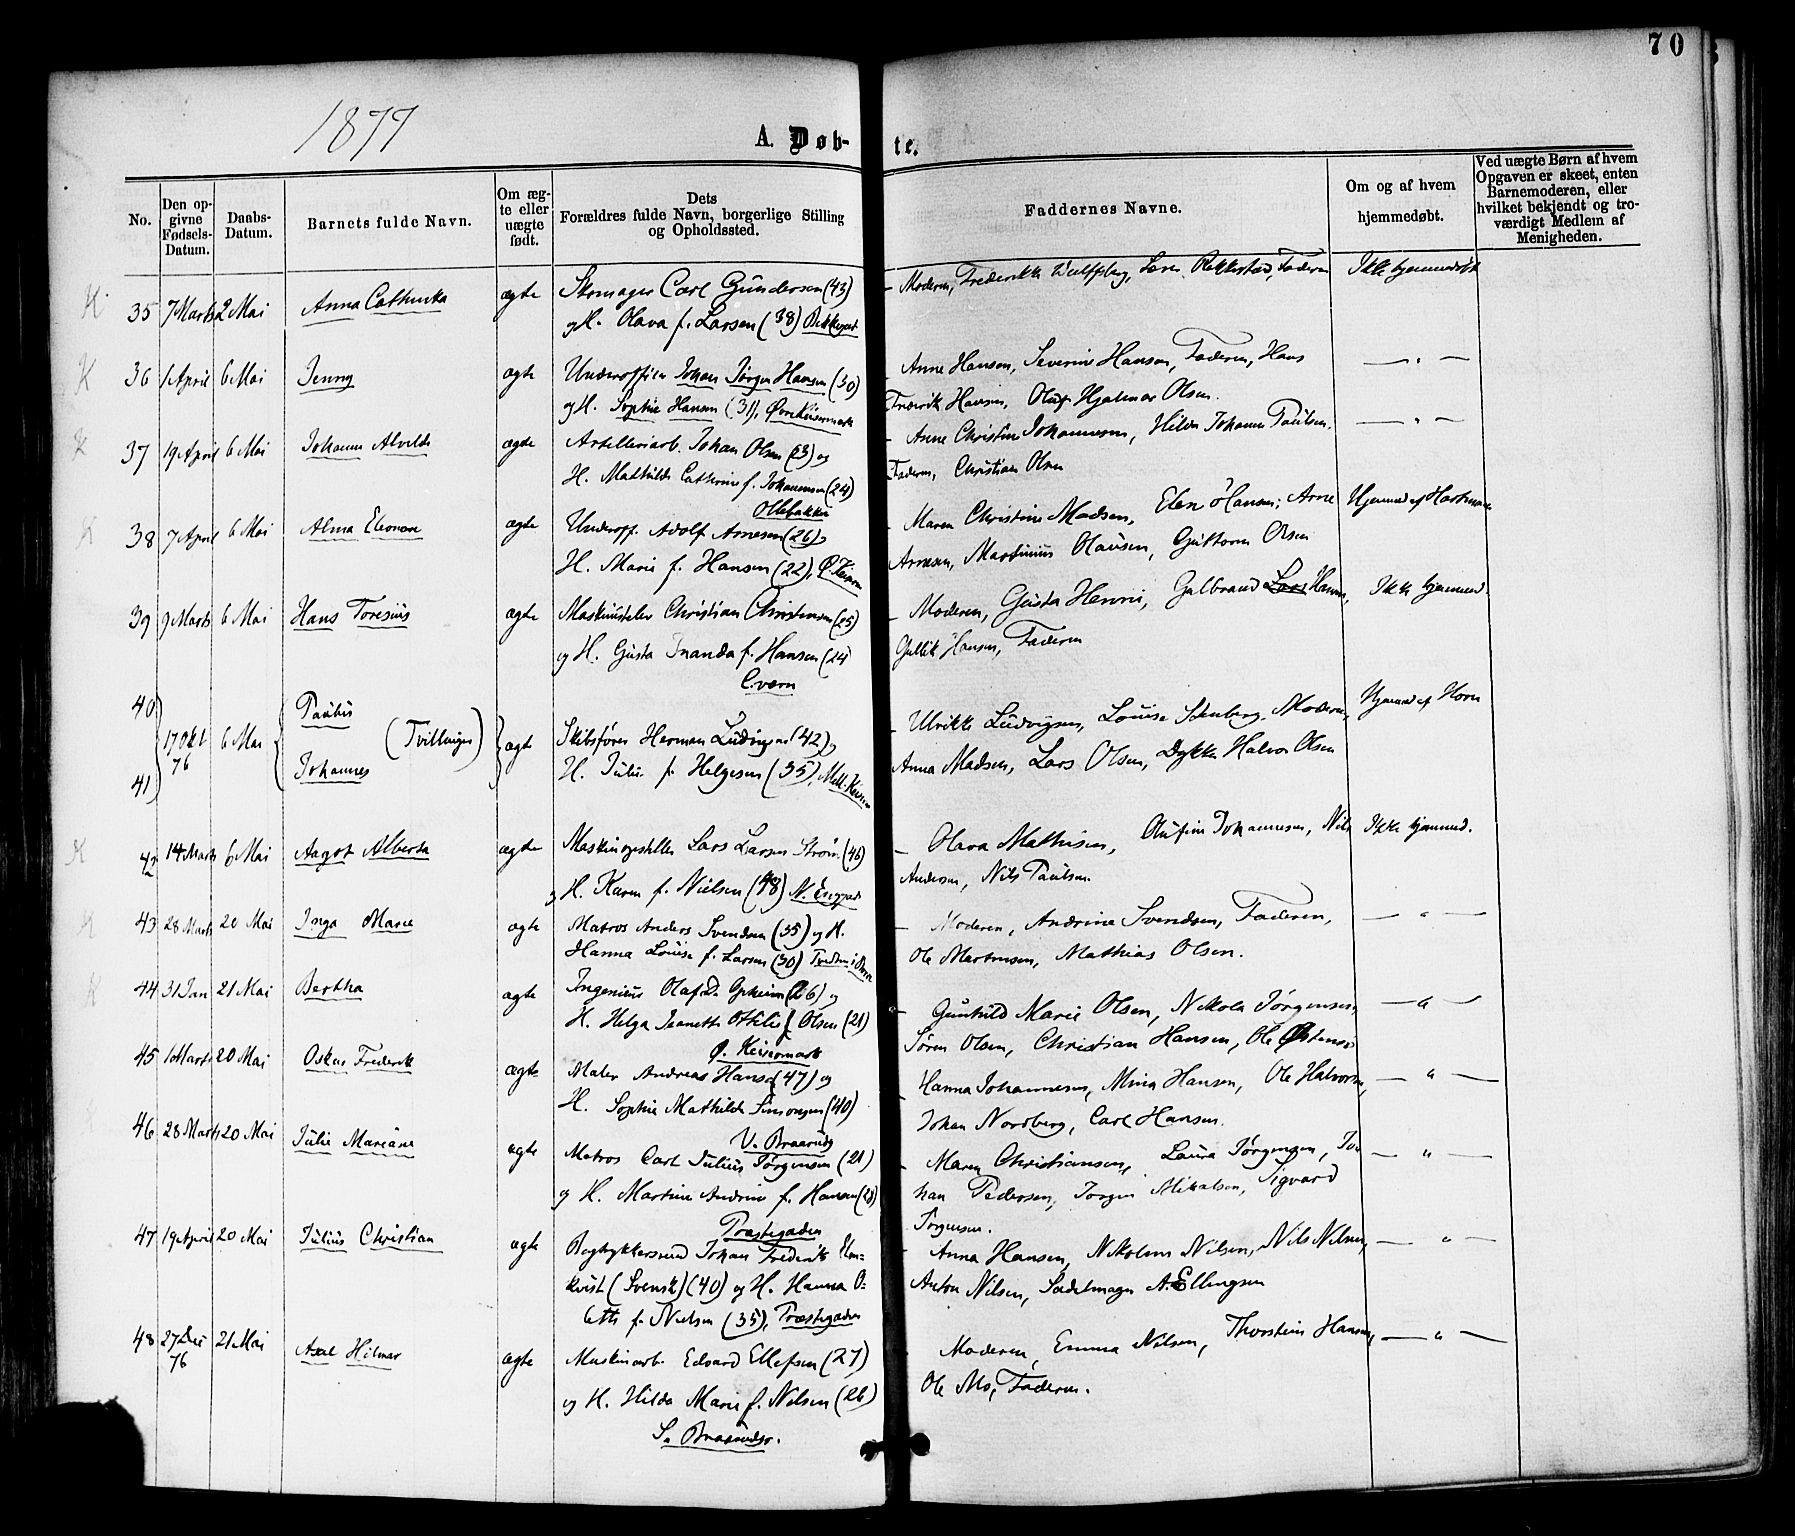 70
1877
A. Døb-
te.
No.
Den opgivne Fødsels-Datum.
Daabs-Datum.
Barnets fulde Navn.
Om ægte eller uægte født.
Dets Forældres fulde Navn, borgerlige Stilling og Opholdssted.
Faddernes Navne.
Om og af hvem hjemmedøbt.
Ved uægte Børn af hvem Opgaven er skeet, enten Barnemoderen, eller hvilket bekjendt og troværdigt Medlem af Menigheden.
K 35 7 Marts 2 Mai Anna ægte Skomager Carl Gundersen (43) - Moderen, Frederikke Lars Rekkestad, Faderen Ikke hjemmedøbt
og H. Olava f. Larsen (38)
K 36 1 April 6 Mai Jenny ægte Underoffiser Johan Jørgen Hansen (30) Anne Hansen, Severine Hansen, Faderen, Hans — " —
og H. Sophie Hansen (31), Fredrik Hansen, Oluf Hjalmar Olsen.
K 37 19 April 6 Mai Johanne Alvilde ægte Artilleriarb. Johan Olsen (23) og - Anne Christine Johannesen, Hilda Johanne Paulsen. — " —
H. Mathilde Cathrine f. Johannesen (24) Faderen, Christian Olsen
Ollebakken
K 38 7 April 6 Mai Alma Eleonore ægte Underoff. Adolf Arnesen (26), - Maren Christine Madsen, Elen Hansen, Arne Hjemmed. af Hartmann
H. Marie f. Hansen (22), Arnesen, Martinius Olausen, Guttorm Olsen
39 9 Marts 6 Mai Hans Toresius ægte Christian Christensen (25) - Moderen, Gusta Henni, Gulbrand Lars Hansen, Ikke hjemmed.
og H. Gusta f. Hansen (24) Gullik Hansen, Faderen
40 Paulus
17 Okt 76 6 Mai (Tvillinger) ægte Skibsfører Herman Ludvigsen (42), - Ulrikke Ludvigsen, Louise Moderen, Hjemmed. af Horn
41 Johannes H. Julie f. Helgesen (35), Anna Madsen, Lars Olsen, Dykker Halvor Olsen
K 42 14 Marts 6 Mai Aagot Alberta ægte Lars Larsen Strøm (46) - Olava Mathisen, Olufine Johannesen, Nils Ikke hjemmed.
og H. Karen f. Nielsen (48) Andersen, Nils Paulsen.
K 43 28 Marts 20 Mai Inga Marie ægte Matros Anders Svendsen (35) og H. - Moderen, Andrine Svendsen, Faderen, — " —
Hanna Louise f. Larsen (30) Ole Martinsen, Mathias Olsen.
K 44 31 Jan 21 Mai Bertha ægte Ingeniør Olaf D. (26) og - Gunhild Marie Olsen, Nikola Jørgensen, — " —
H. Helga Jeanette Ottilie f. Olsen (21) Søren Olsen, Christian Hansen, Ole Østensen
Ø. Keisermark
45 1 Marts 20 Mai Oskar Frederik ægte Maler Andreas Hansen (47) og Hanna Johannesen, Mina Hansen, Ole Halvorsen, — " —
H. Sophie Mathilde (40) Johan Nordberg, Carl Hansen.
V. Braarudg
46 28 Marts 20 Mai Julie Mariane ægte Matros Carl Julius Jørgensen (21) - Maren Christiansen, Laura Jørgensen, Jo- — " —
og H. Martine Andrine f. Hansen (23) han Pedersen, Jørgen Mikalsen, Sigvard
Præstegaden Jørgensen.
47 19 April 20 Mai Julius Christian ægte Bogtrykkersvend Johan Frederik - Anna Hansen, Nikoline Nilsen, Nils Nilsen, — " —
kvist (Svensk) (40) og H. Hanna O- Anton Nilsen, Sadelmager A. Ellingsen
lette f. Nielsen (35), Præstegaden
48 27 De 76 21 Mai Axel Hilmar ægte Maskinarb. Edvard Ellefsen (27) Moderen, Emma Nilsen, Thorstein Hansen, — " —
og H. Hilda Marie f. Nilsen (26) Ole Mo, Faderen.
S. Braarudgr.